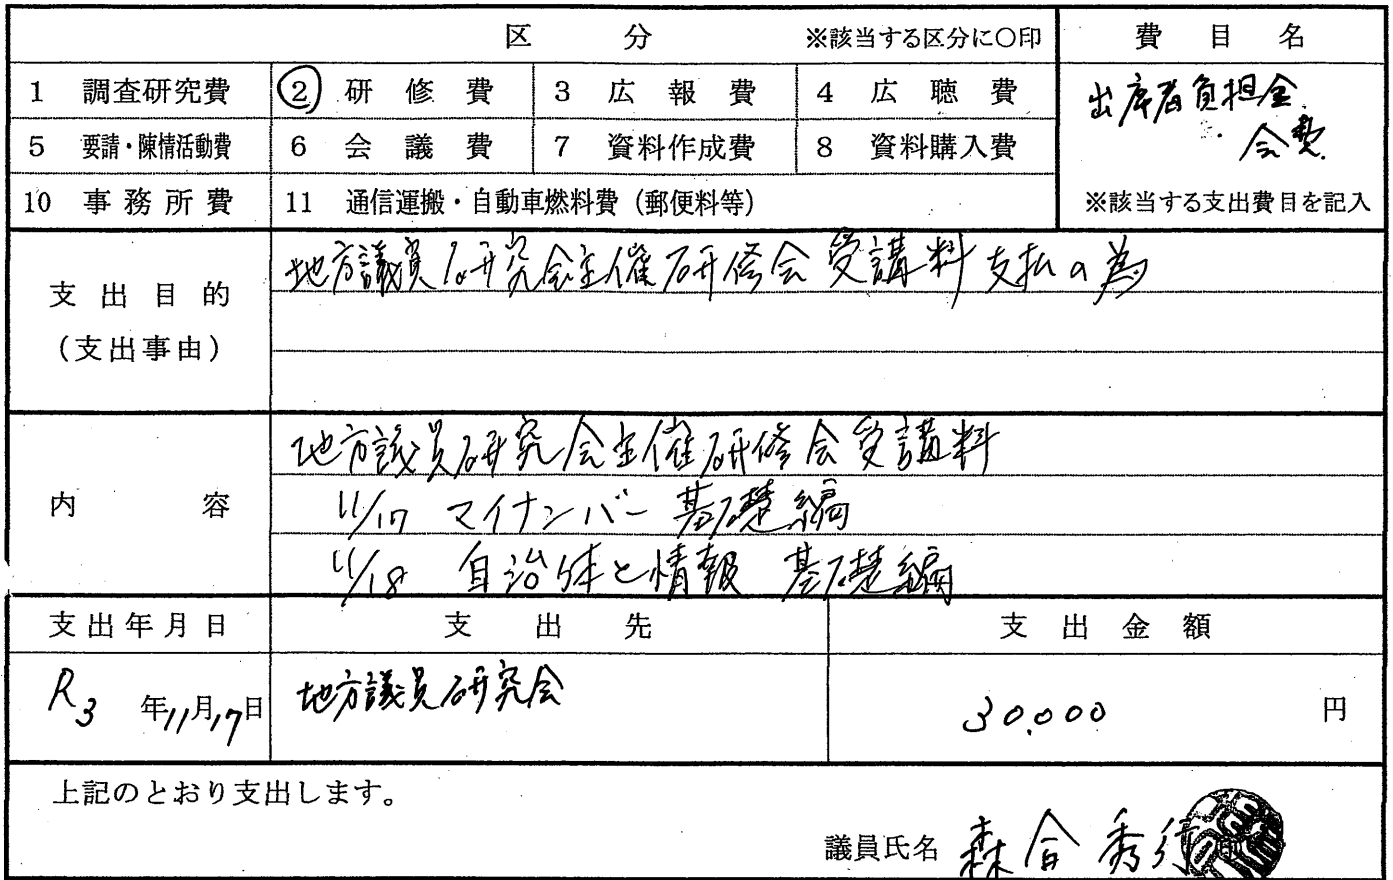 区 分 ※該当する区分に〇印 費 目 名
1 調査研究費 ② 研 修 費 3 広 報 費 4 広 聴 費
出席者負担金
会費
5 要請・陳情活動費 6 会 議 費 7 資料作成費 8 資料購入費
10 事務所費 11 通信運搬・自動車燃料費（郵便料等） ※該当する支出費目を記入
支出目的
（支出事由）
地方議員研究会主催研修会受講料支払の為
内 容
地方議員研究会主催研修会受講料
11/17 マイナンバー 基礎編
11/18 自治体と情報 基礎編
支出年月日 支 出 先 支 出 金 額
R3 年11月17日 地方議員研究会 30,000 円
上記のとおり支出します。
議員氏名 森合秀行